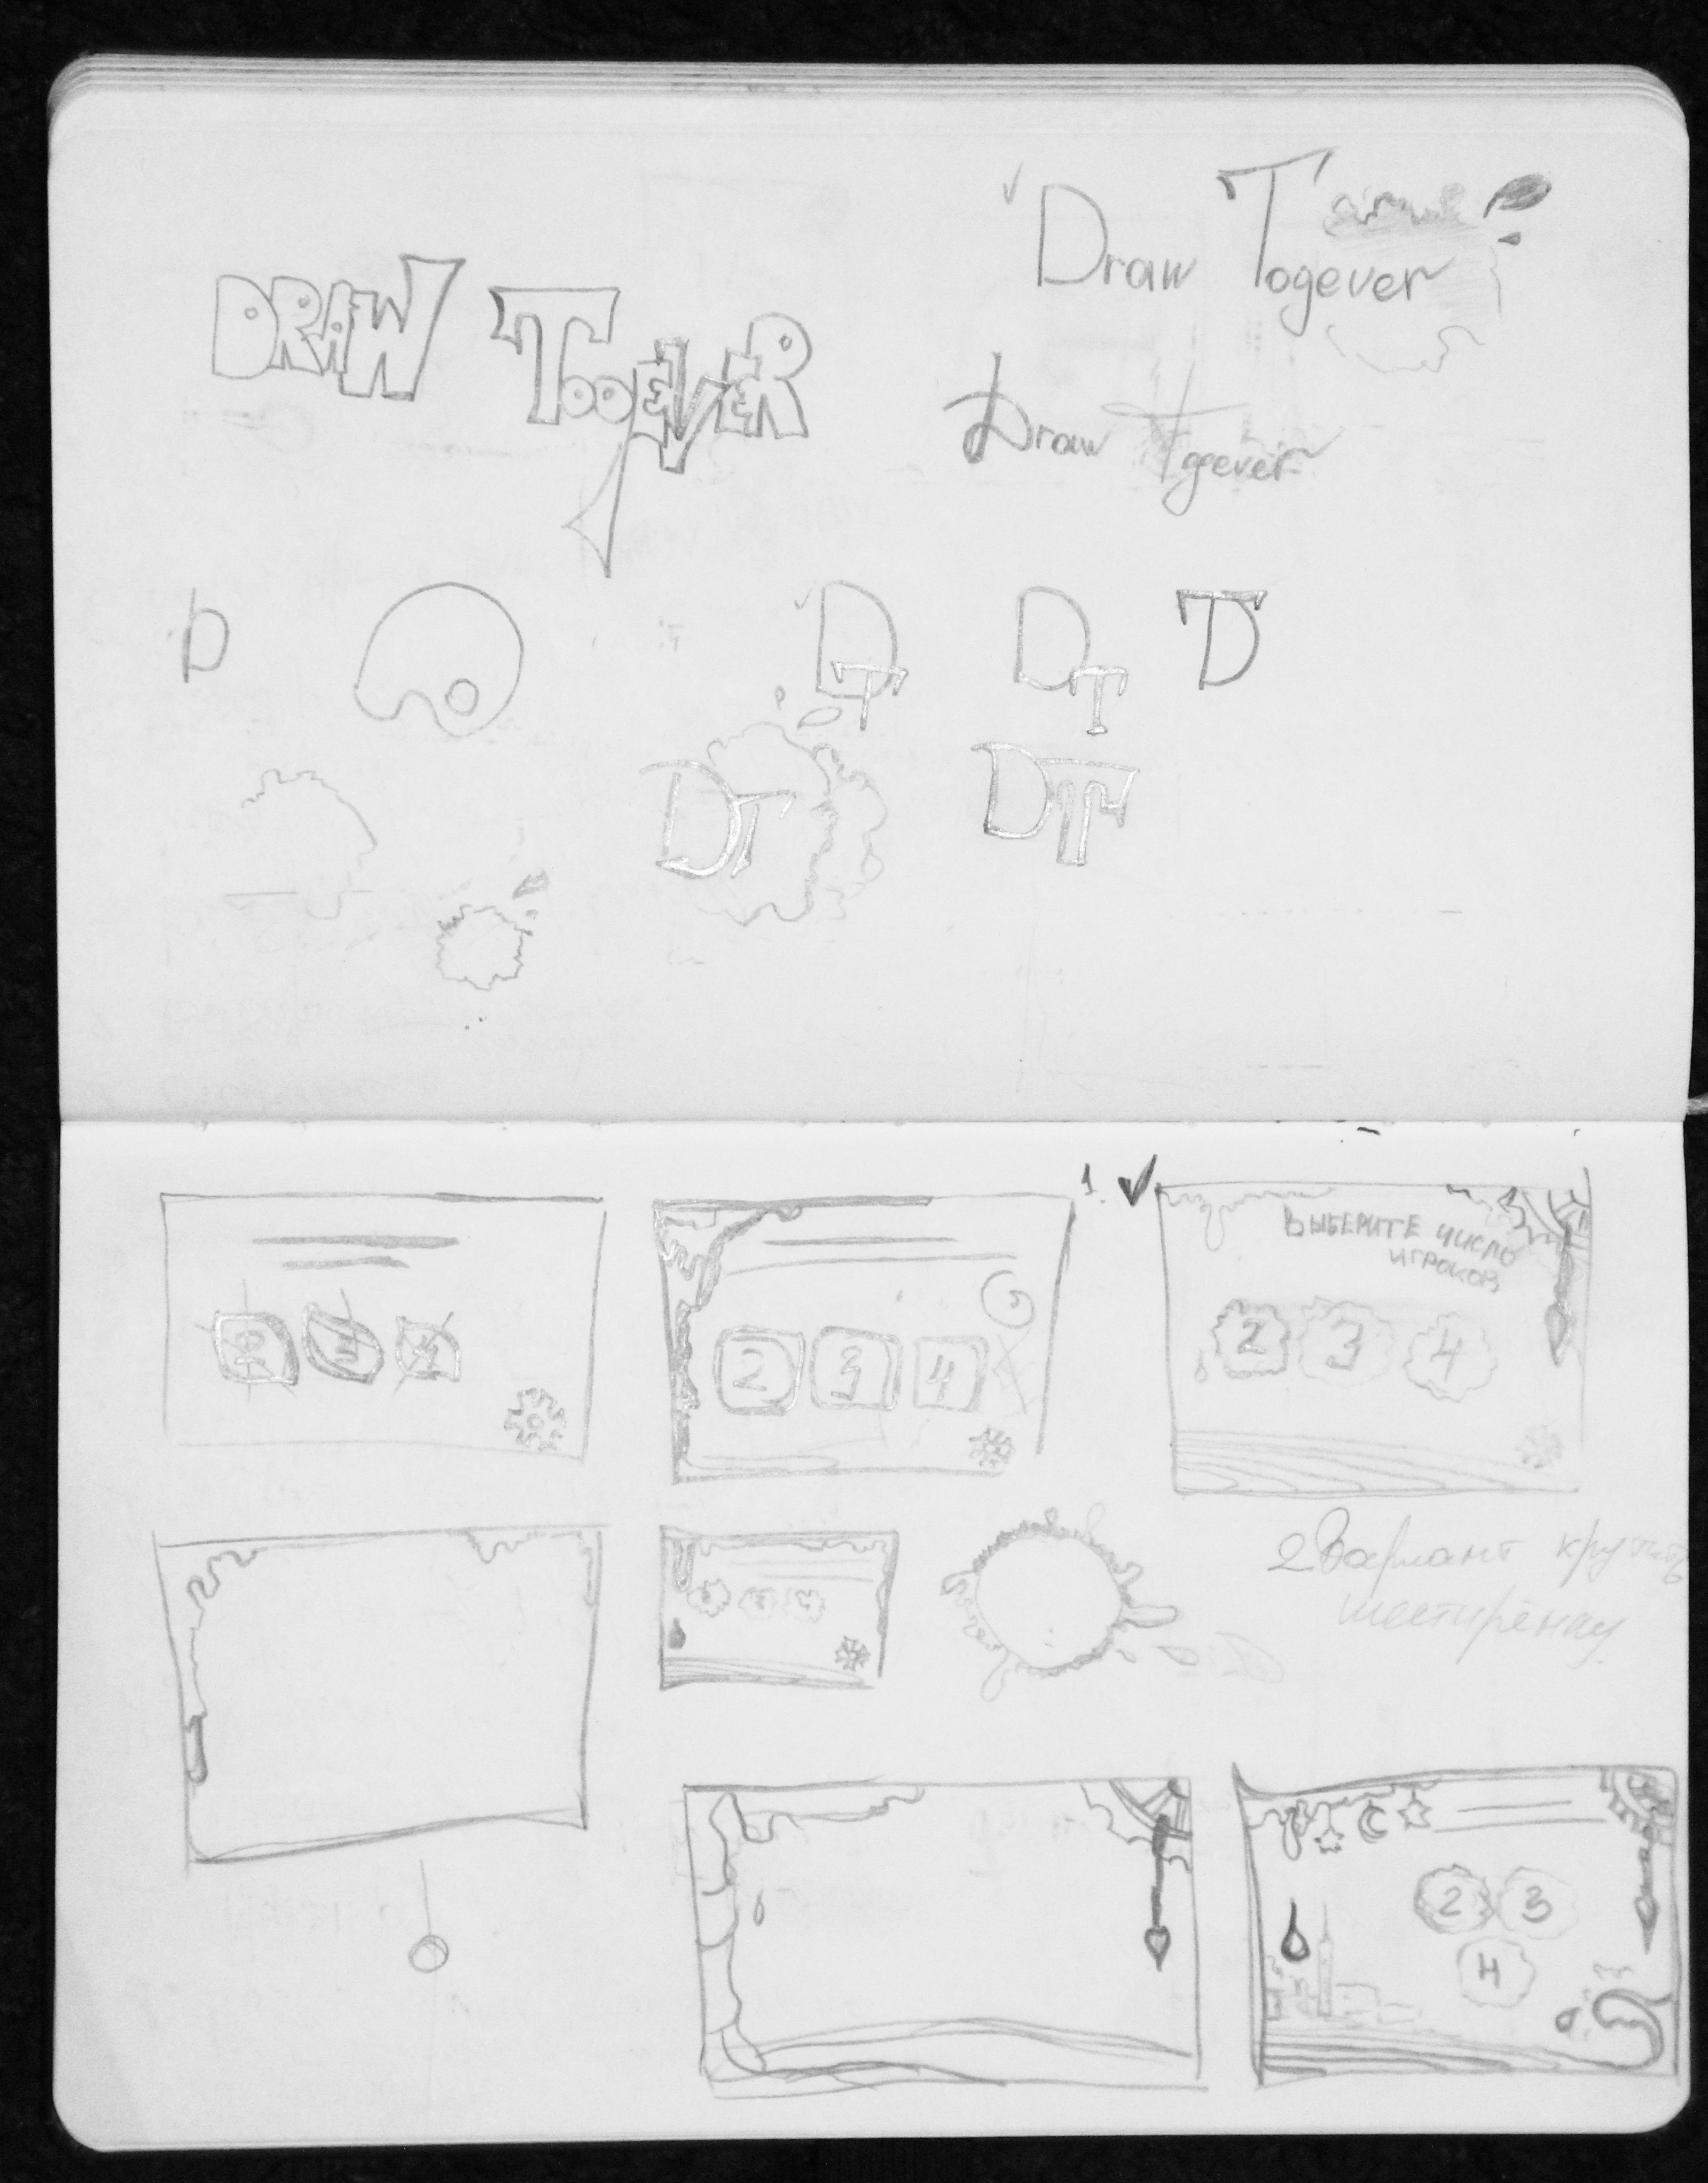 Draw Togever
DRAW TOGEVER
Draw Togever
D
DT
DT
TD
DT
DT
1.
ВЫБЕРИТЕ ЧИСЛО
ИГРОКОВ
2 3 4
2 3 4
2 3 4
2 Вариант крутить
шестирёнку
2 3 4
2 3
4